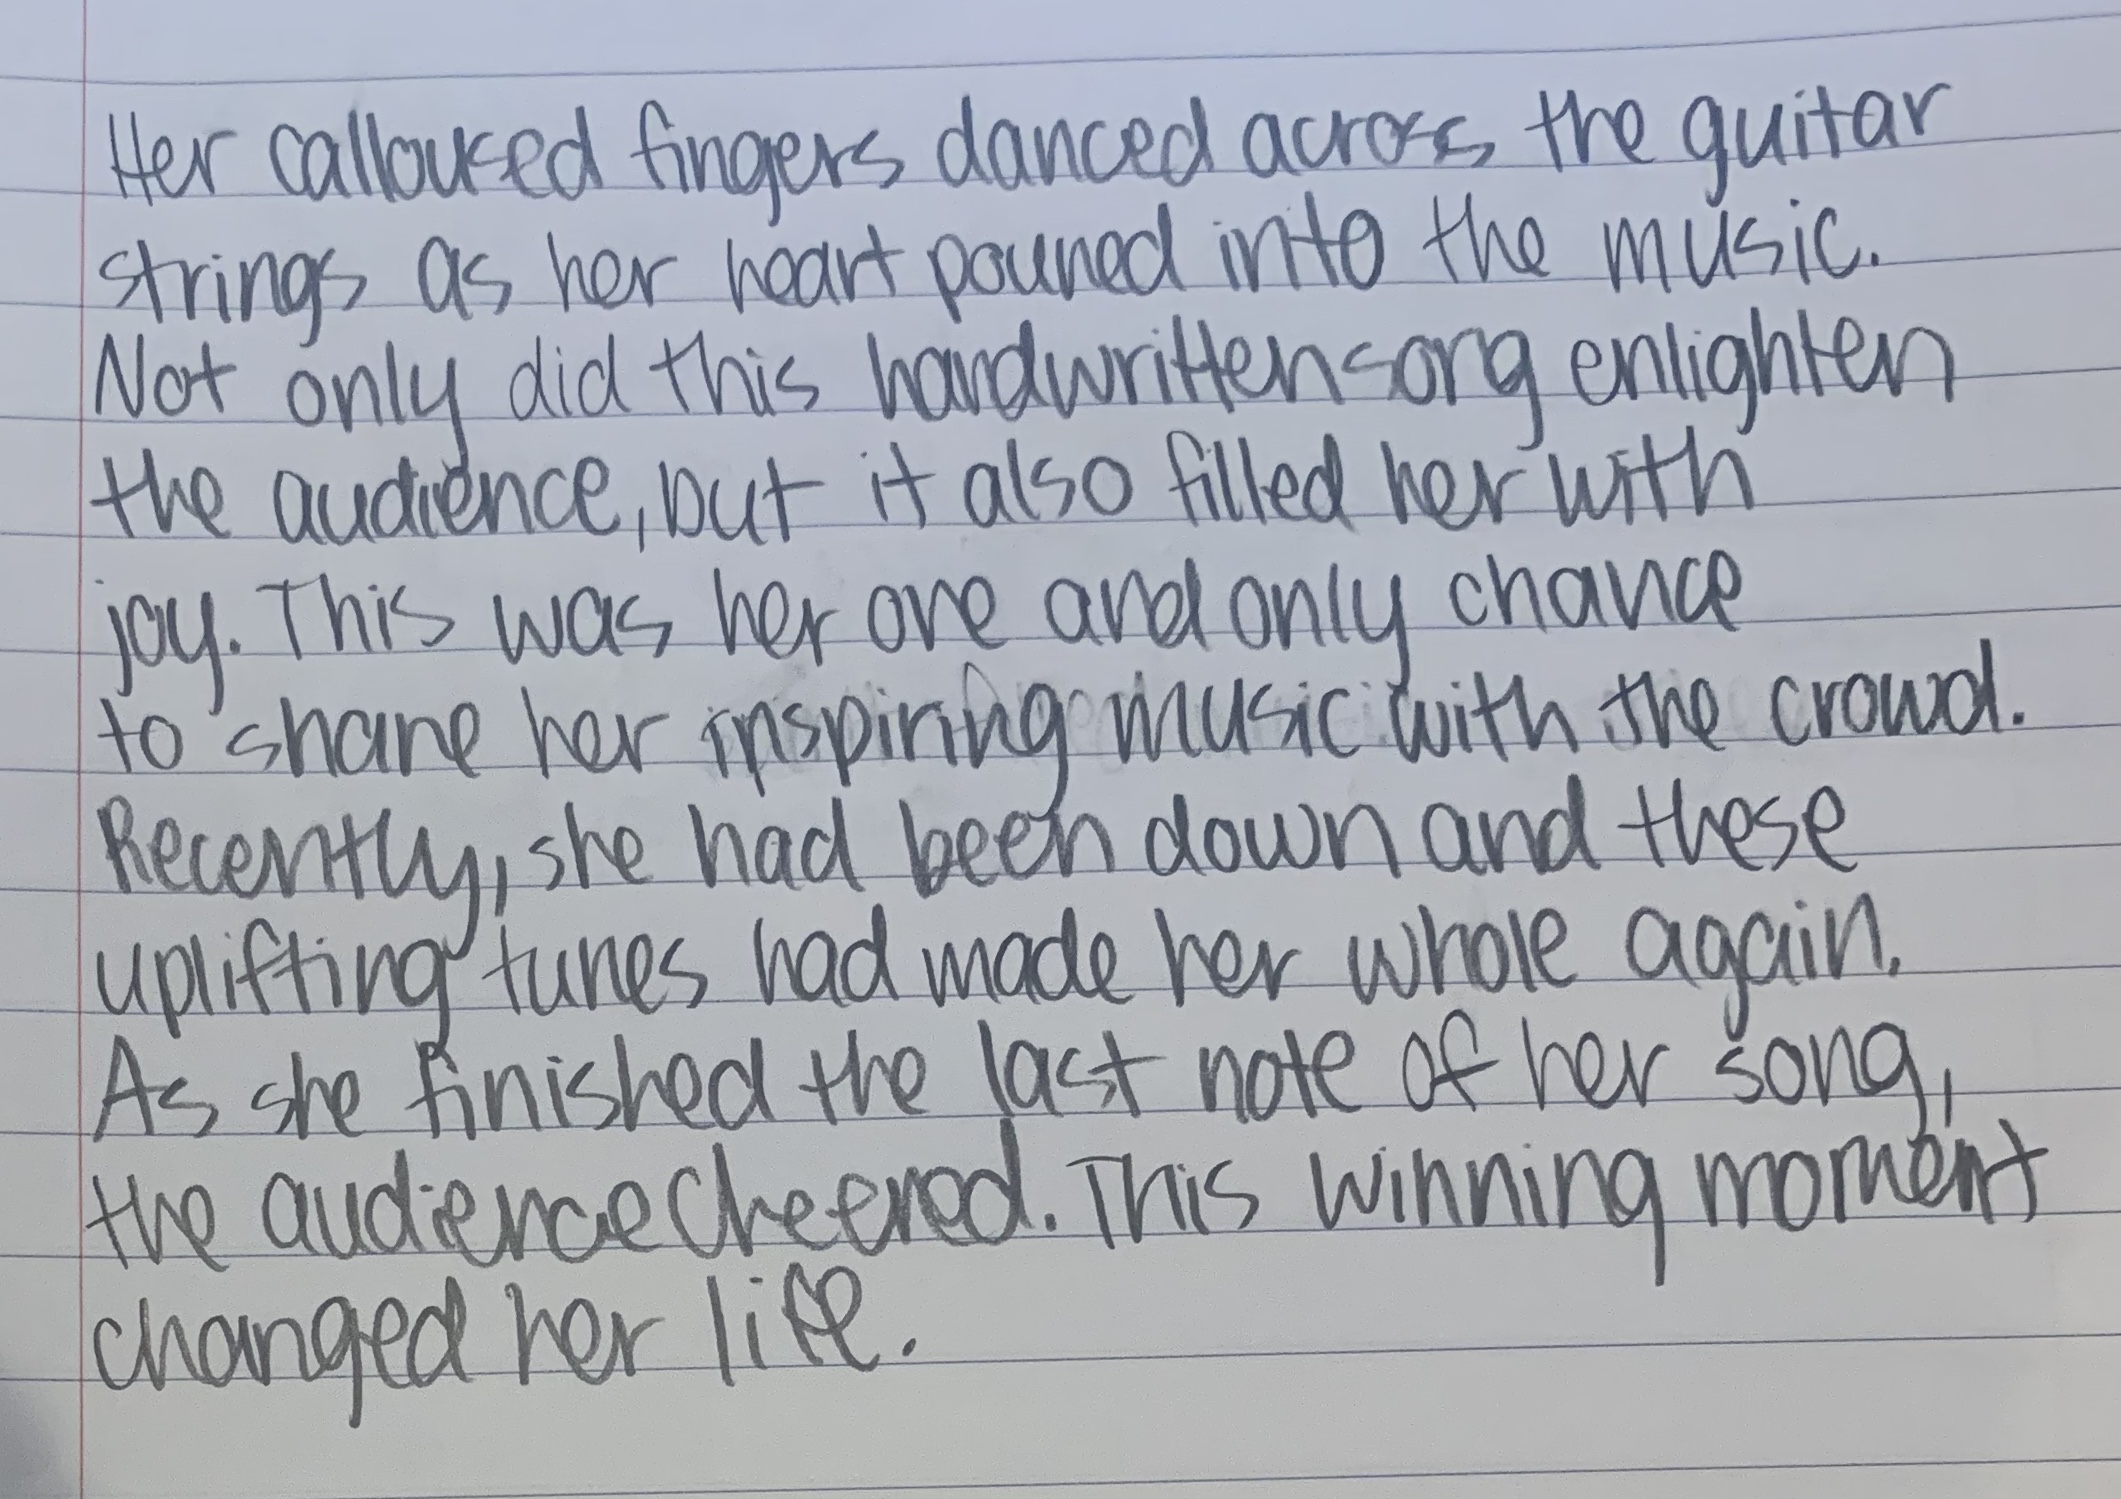 Her calloused fingers danced across the guitar
strings as her heart poured into the music.
Not only did this handwritten song enlighten
the audience, but it also filled her with
joy. This was her one and only chance
to share her inspiring music with the crowd.
Recently, she had been down and these
uplifting tunes had made her whole again.
As she finished the last note of her song,
the audience cheered. This winning moment
changed her life.